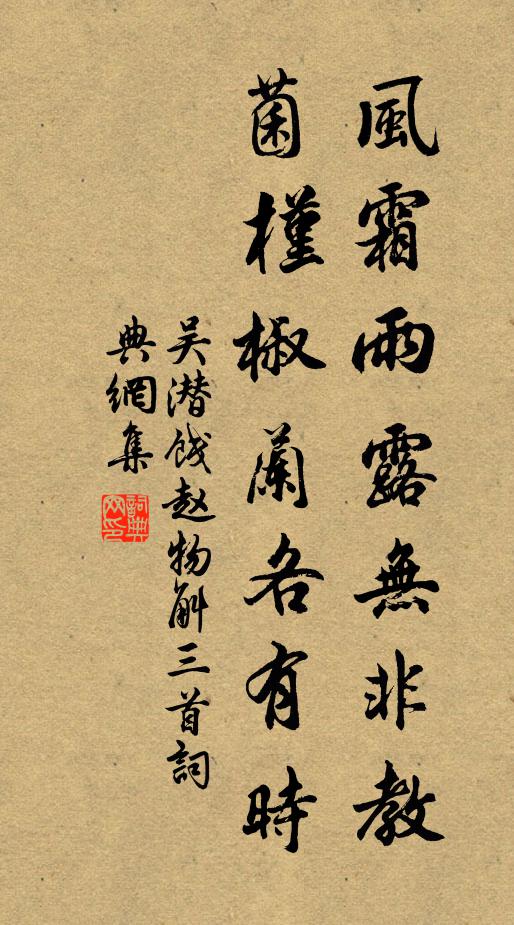 風霜雨露無非教
菌槿椒蘭各有時
吴潜饯赵物斛三首詞
典網集
詞典網印